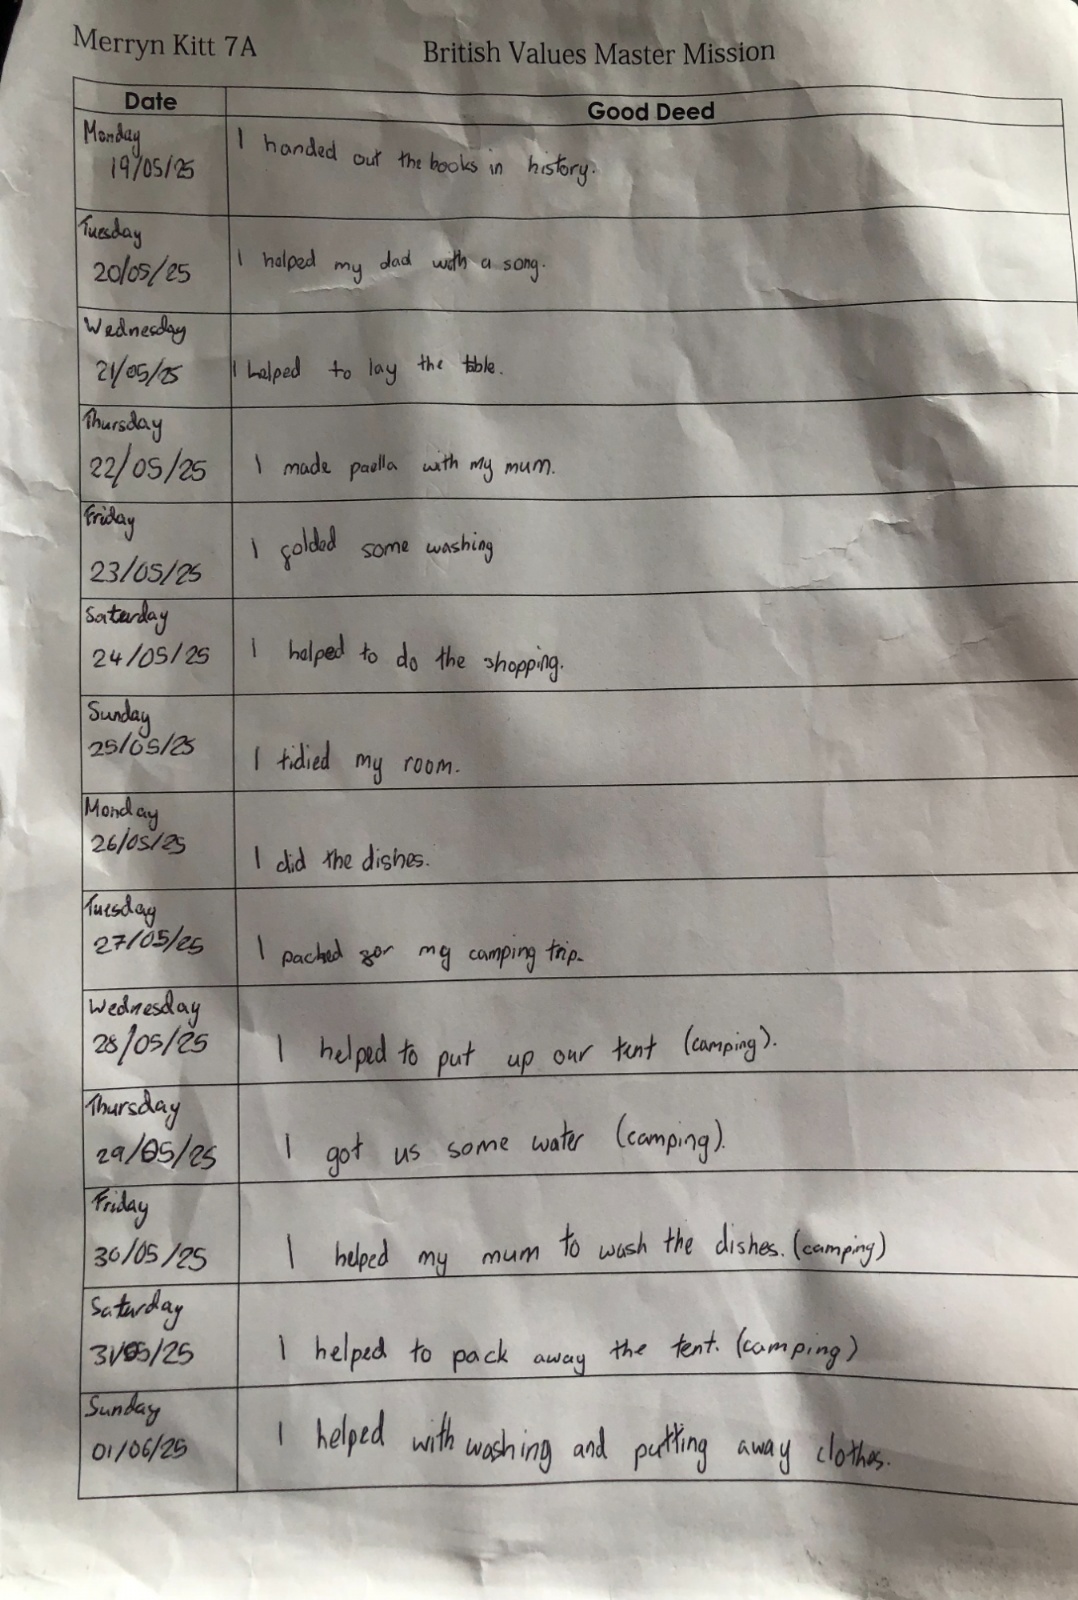 Merryn Kitt 7A
British Values Master Mission
Date
Good Deed
Monday
19/05/25
I handed out the books in history.
Tuesday
20/05/25
I helped my dad with a song.
Wednesday
21/05/25
I helped to lay the table.
Thursday
22/05/25
I made paella with my mum.
Friday
23/05/25
I folded some washing
Saturday
24/05/25
I helped to do the shopping.
Sunday
25/05/25
I tidied my room.
Monday
26/05/25
I did the dishes.
Tuesday
27/05/25
I packed for my camping trip.
Wednesday
28/05/25
I helped to put up our tent (camping).
Thursday
29/05/25
I got us some water (camping).
Friday
30/05/25
I helped my mum to wash the dishes. (camping)
Saturday
31/05/25
I helped to pack away the tent. (camping)
Sunday
01/06/25
I helped with washing and putting away clothes.